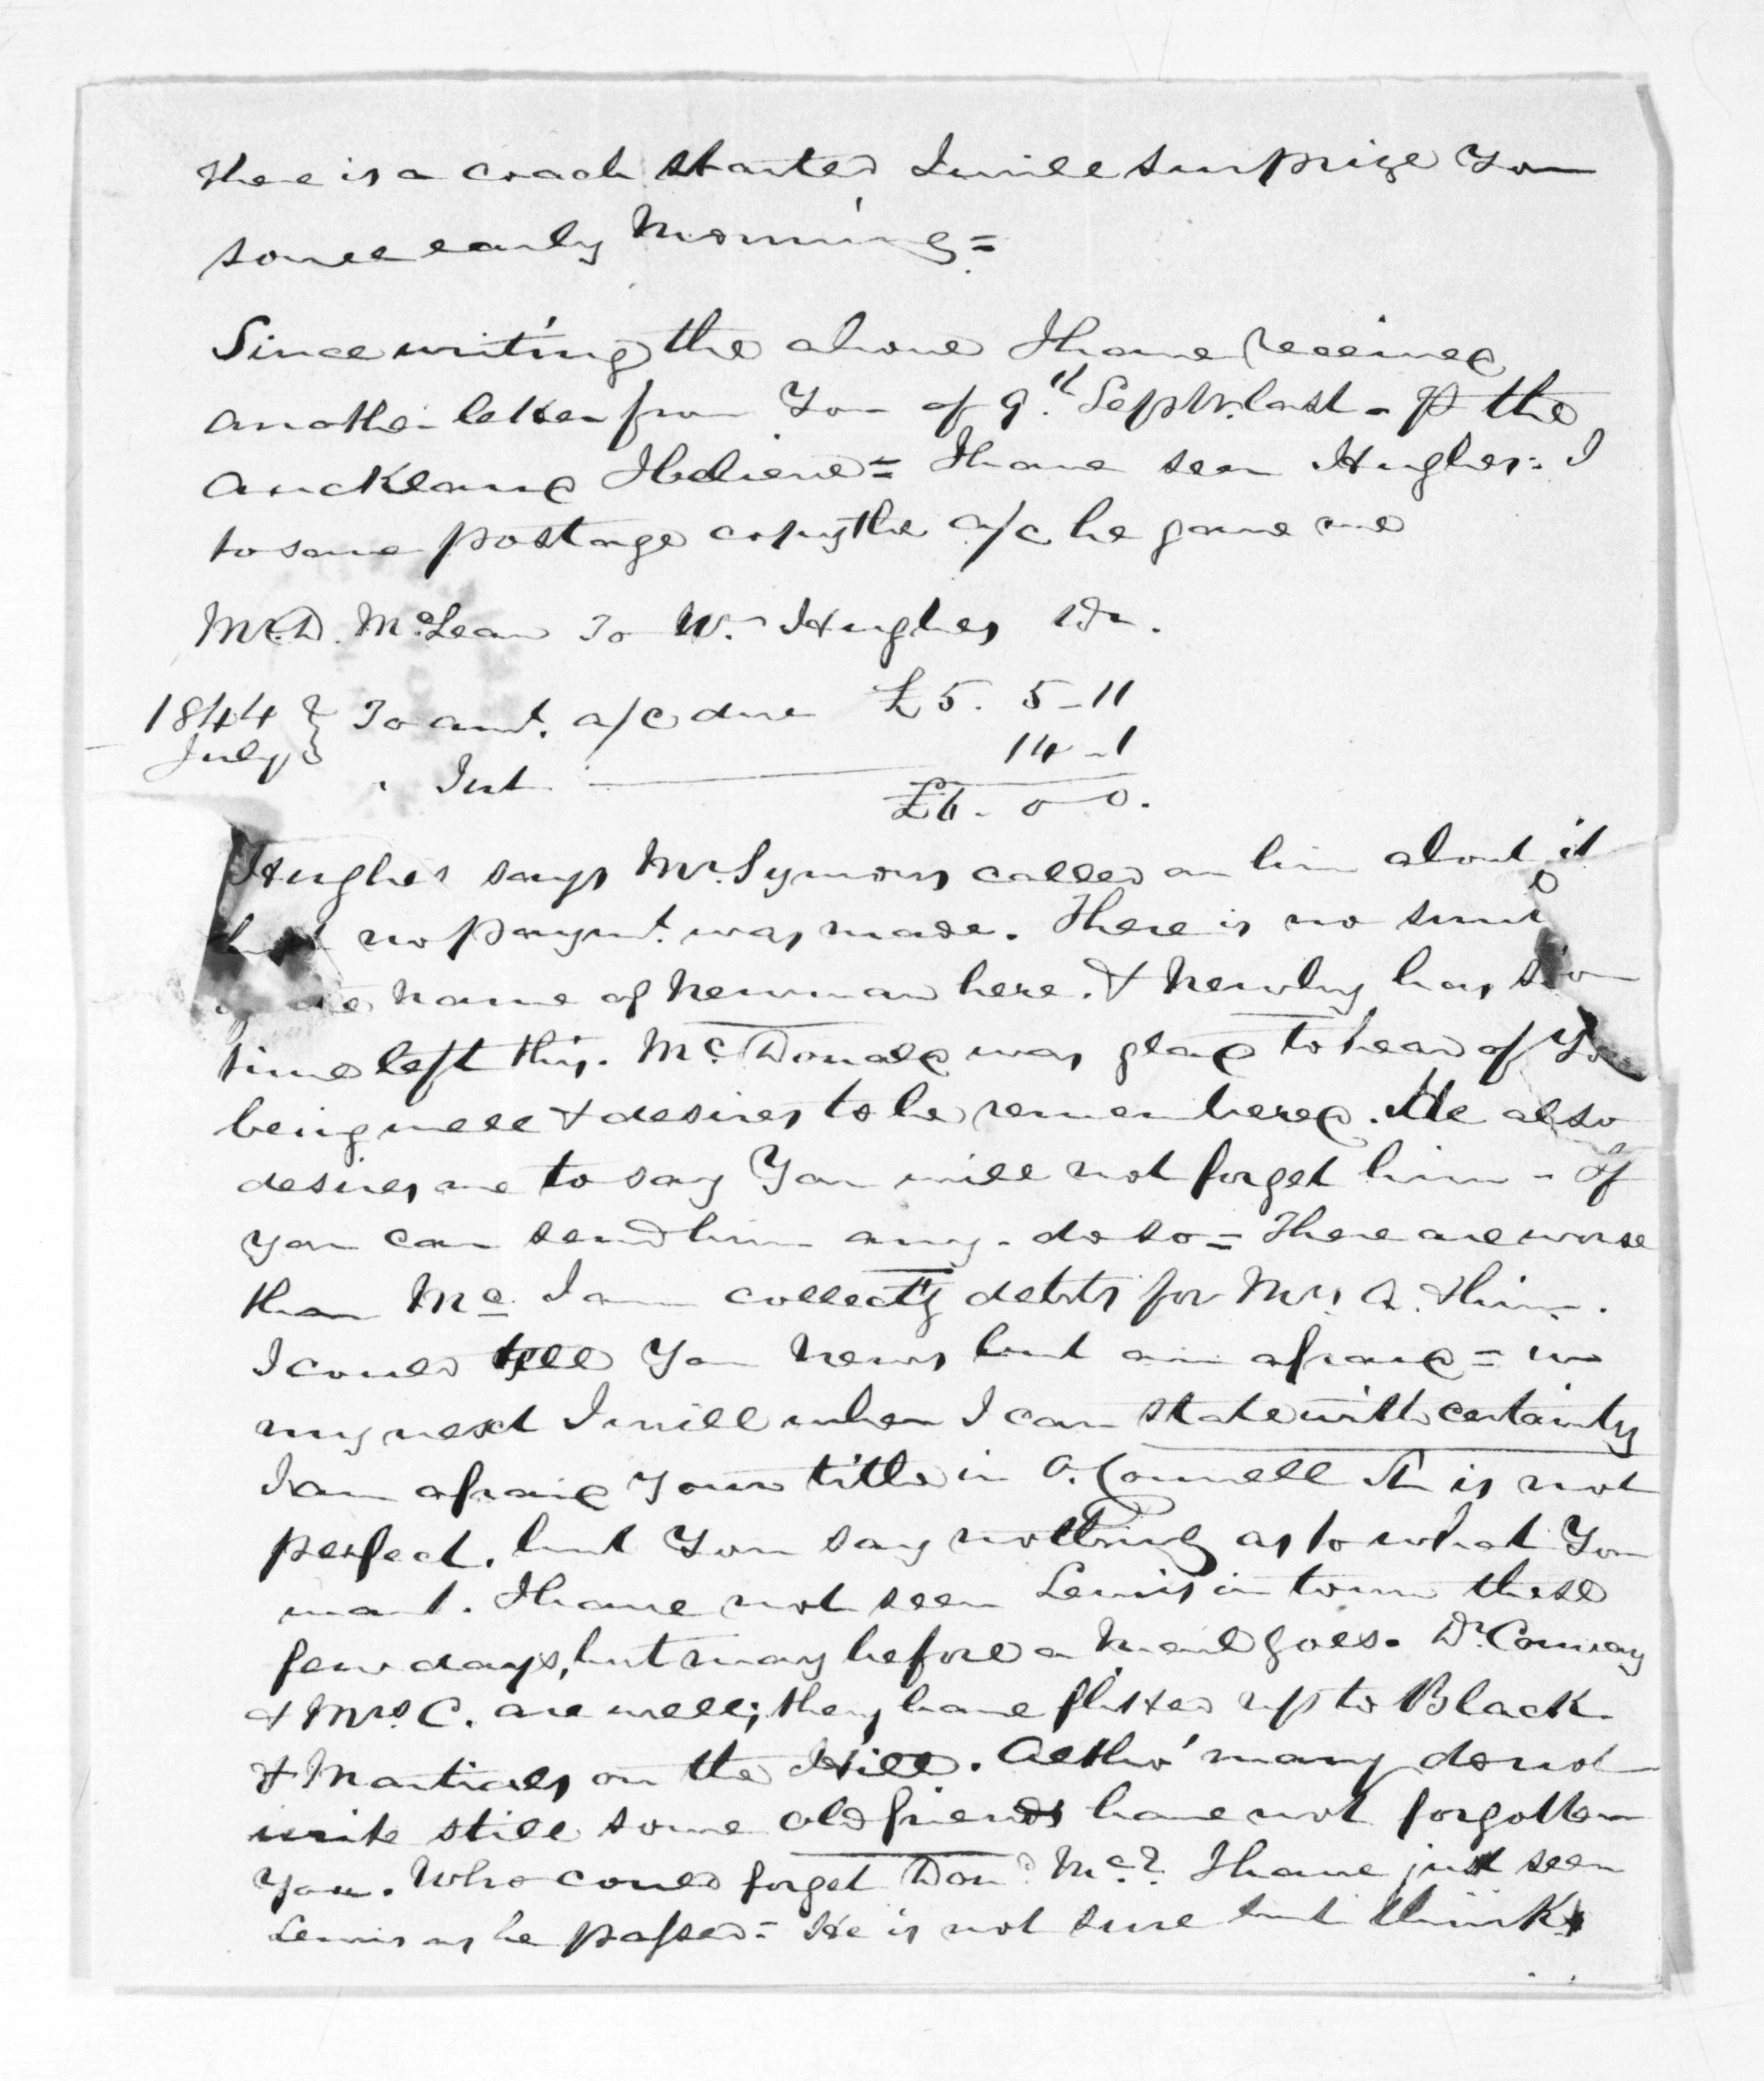 there is a coach started I will surprize You
some early Morning =
Since writing the above I have received
another letter from You of 9th Septr. last - P the
Auckland I believe = I have seen Hughes = I
to save postage copy the a/c he gave me
Mr. D. McLean To Wm Hughes Dr.
1844 } To amt. a/c due £5. 5-11
July } " Int 14-1
£6. 0 0.
Hughes says Mr. Symons called on him about it
but no paymt. was made. There is no
of the name of Newman here. & Newby has
time left this. McDonald was glad to hear of Yr
being well & desires to be remembered. He also
desires me to say You will not forget him - If
you can send him any - do so = There are worse
than Mc I am collectg debts for Mrs. A. & him.
I could tell You News but am afraid = in
my next I will when I can state with certainty
I am afraid Your title in O.Connell St is not
perfect, but You say nothing as to what You
want. I have not seen Lewis in town these
few days, but may before a Mail goes. Dr. Conway
& Mrs. C. are well; they have flitted up to Black
& on the Hill. Altho' many do not
write still some old friends have not forgotten
You. Who could forget Dond. Mc.? I have just seen
Lewis as he passed = He is not sure but thinks